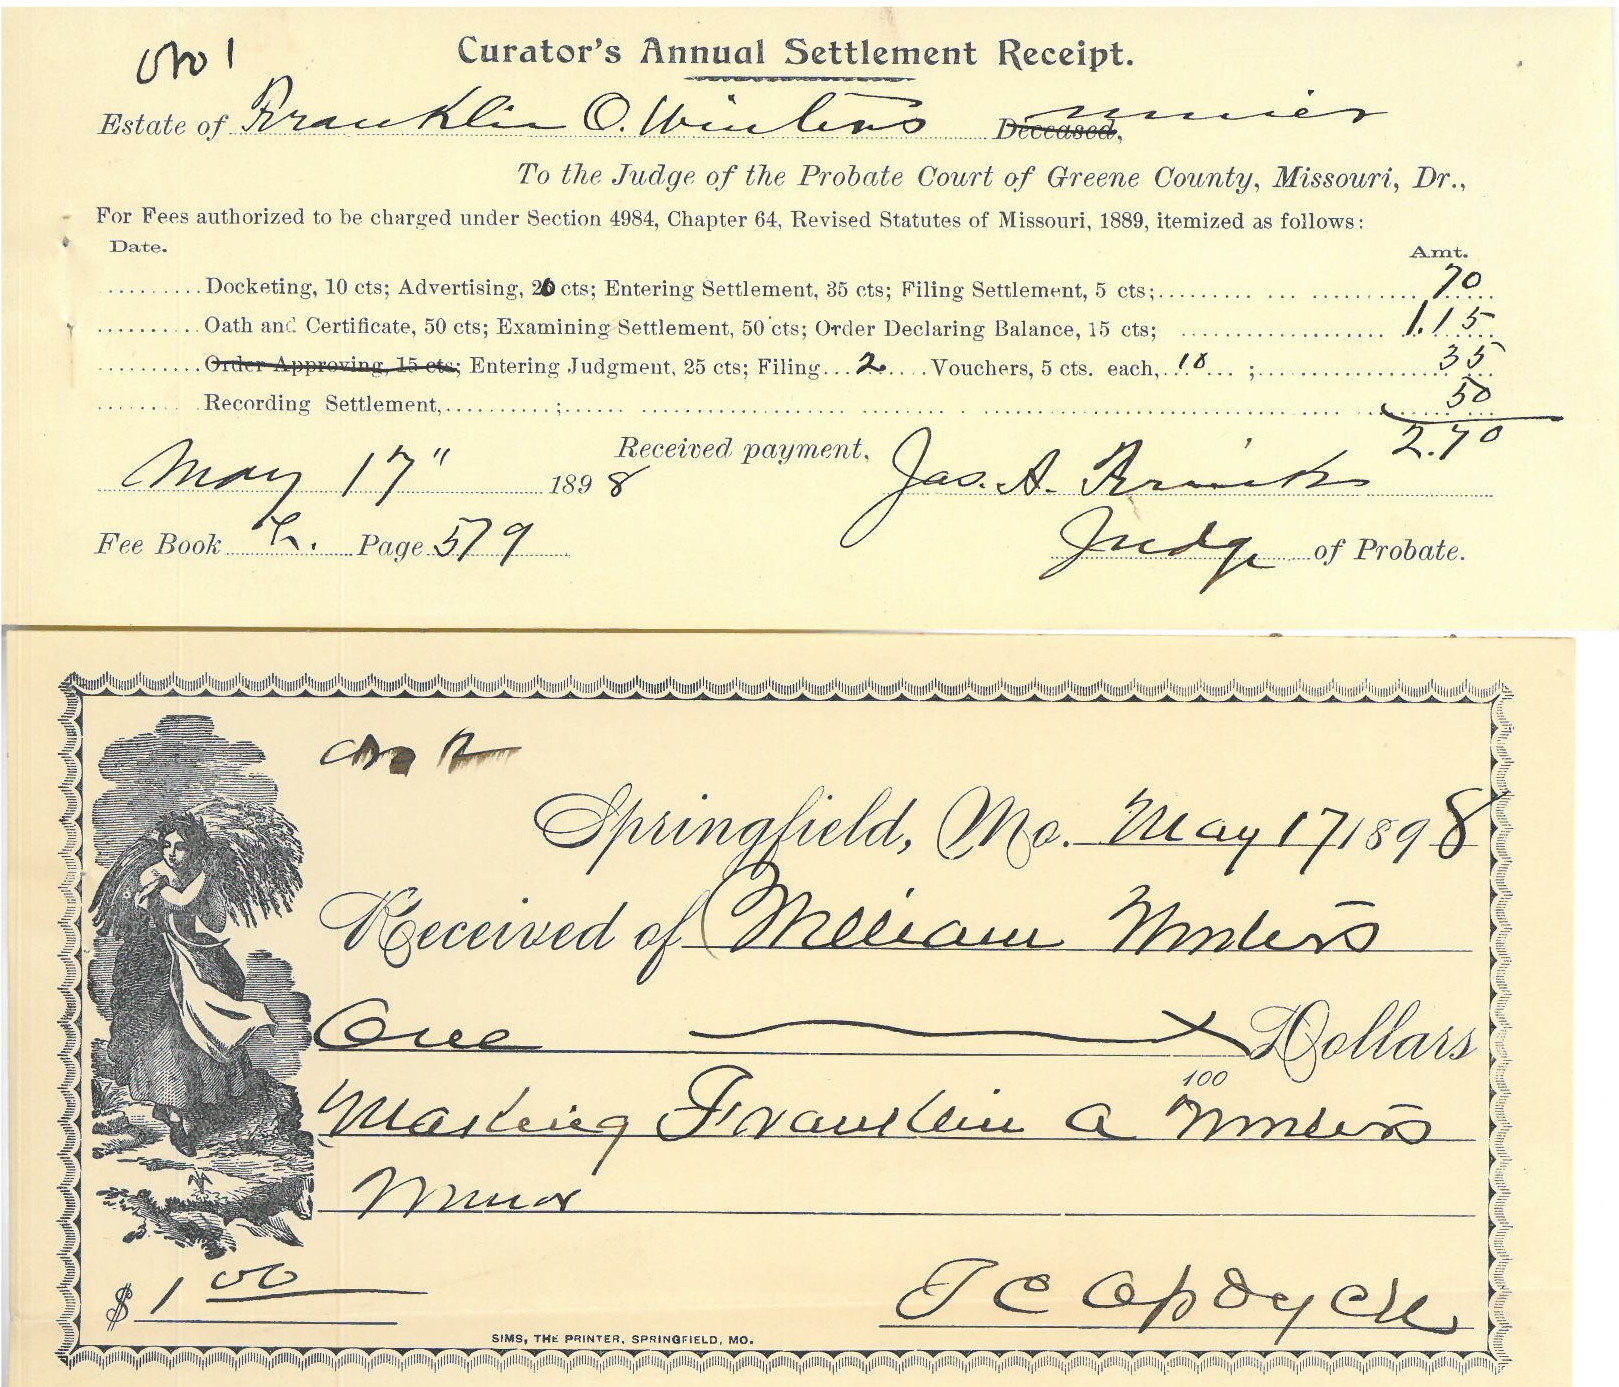 No 1
Curator's Annual Settlement Receipt.
Estate of Franklin O. Winters Deceased, minor
To the Judge of the Probate Court of Greene County, Missouri, Dr.,
For Fees authorized to be charged under Section 4984, Chapter 64, Revised Statutes of Missouri, 1889, itemized as follows:
Date. Amt.
Docketing, 10 cts; Advertising, 20 cts; Entering Settlement, 35 cts; Filing Settlement, 5 cts; 70
Oath and Certificate, 50 cts; Examining Settlement, 50 cts; Order Declaring Balance, 15 cts; 1.15
Order Approving, 15 cts; Entering Judgment, 25 cts; Filing 2 Vouchers, 5 cts. each, 10 ; 35
Recording Settlement, ; 50
2.70
Received payment,
May 17" 1898 Jas. A.
Fee Book Page 579 Judge of Probate.
No 2
Springfield, Mo. May 17 1898
Received of William Winters
One Dollars
100
Making Franklin A Winters
Minor
$ 1 00 T C Opdycke
SIMS, THE PRINTER, SPRINGFIELD, MO.